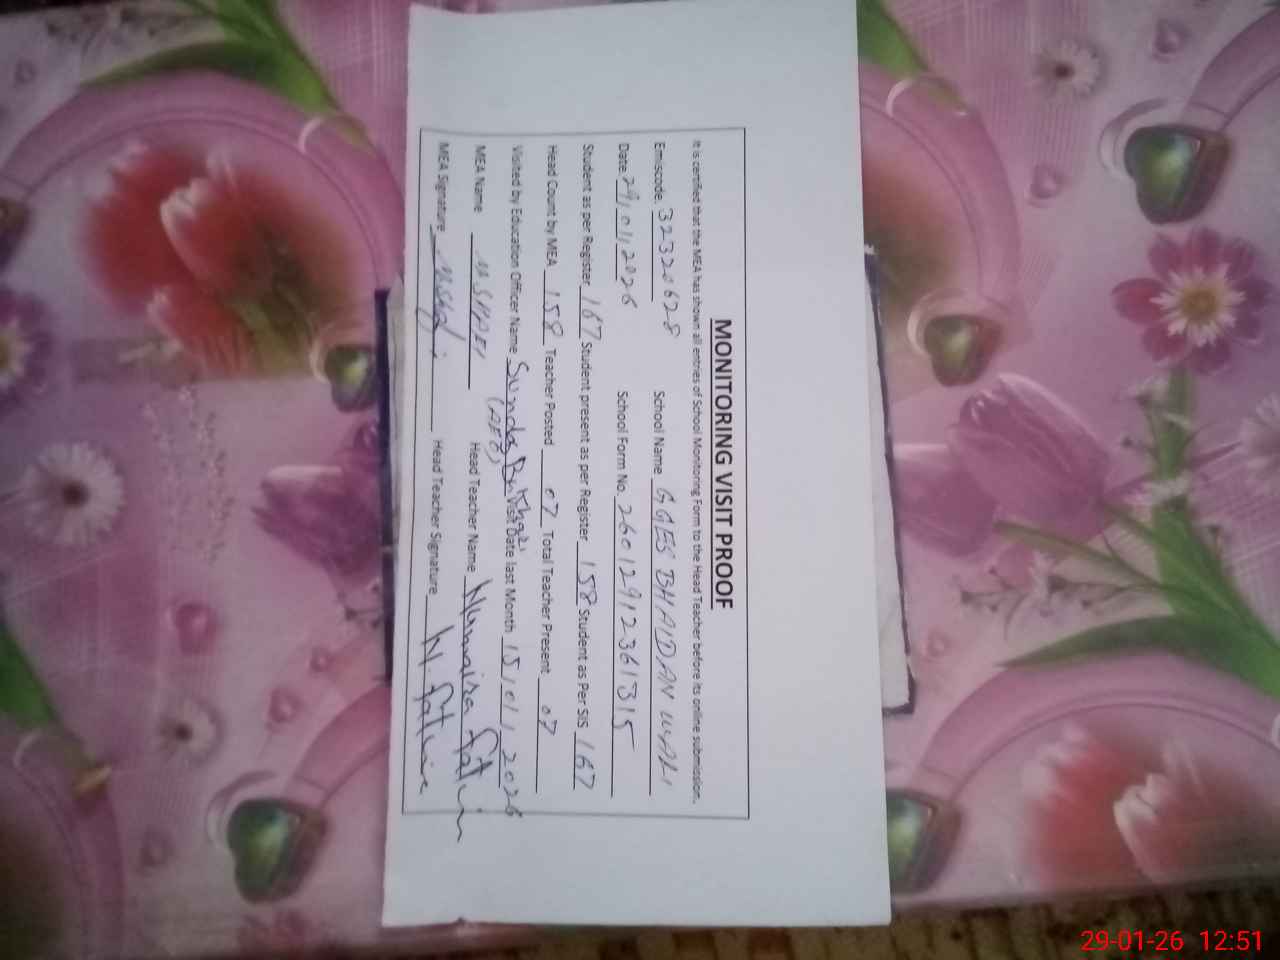 MONITORING VISIT PROOF
It is certified that the MEA has shown all entries of School Monitoring Form to the Head Teacher before its online submission.
Emiscode. 32320628 School Name GGES BHAIDAN WALI
Date. 29/01/2026 School Form No. 26012912361315
Student as per Register. 167 Student present as per Register 158 Student as Per SIS 167
Head Count by MEA 158 Teacher Posted 07 Total Teacher Present 07
Visited by Education Officer Name (AEO) Visit Date last Month 15/01/2026
MEA Name Head Teacher Name
MEA Signature Head Teacher Signature
29-01-26 12:51